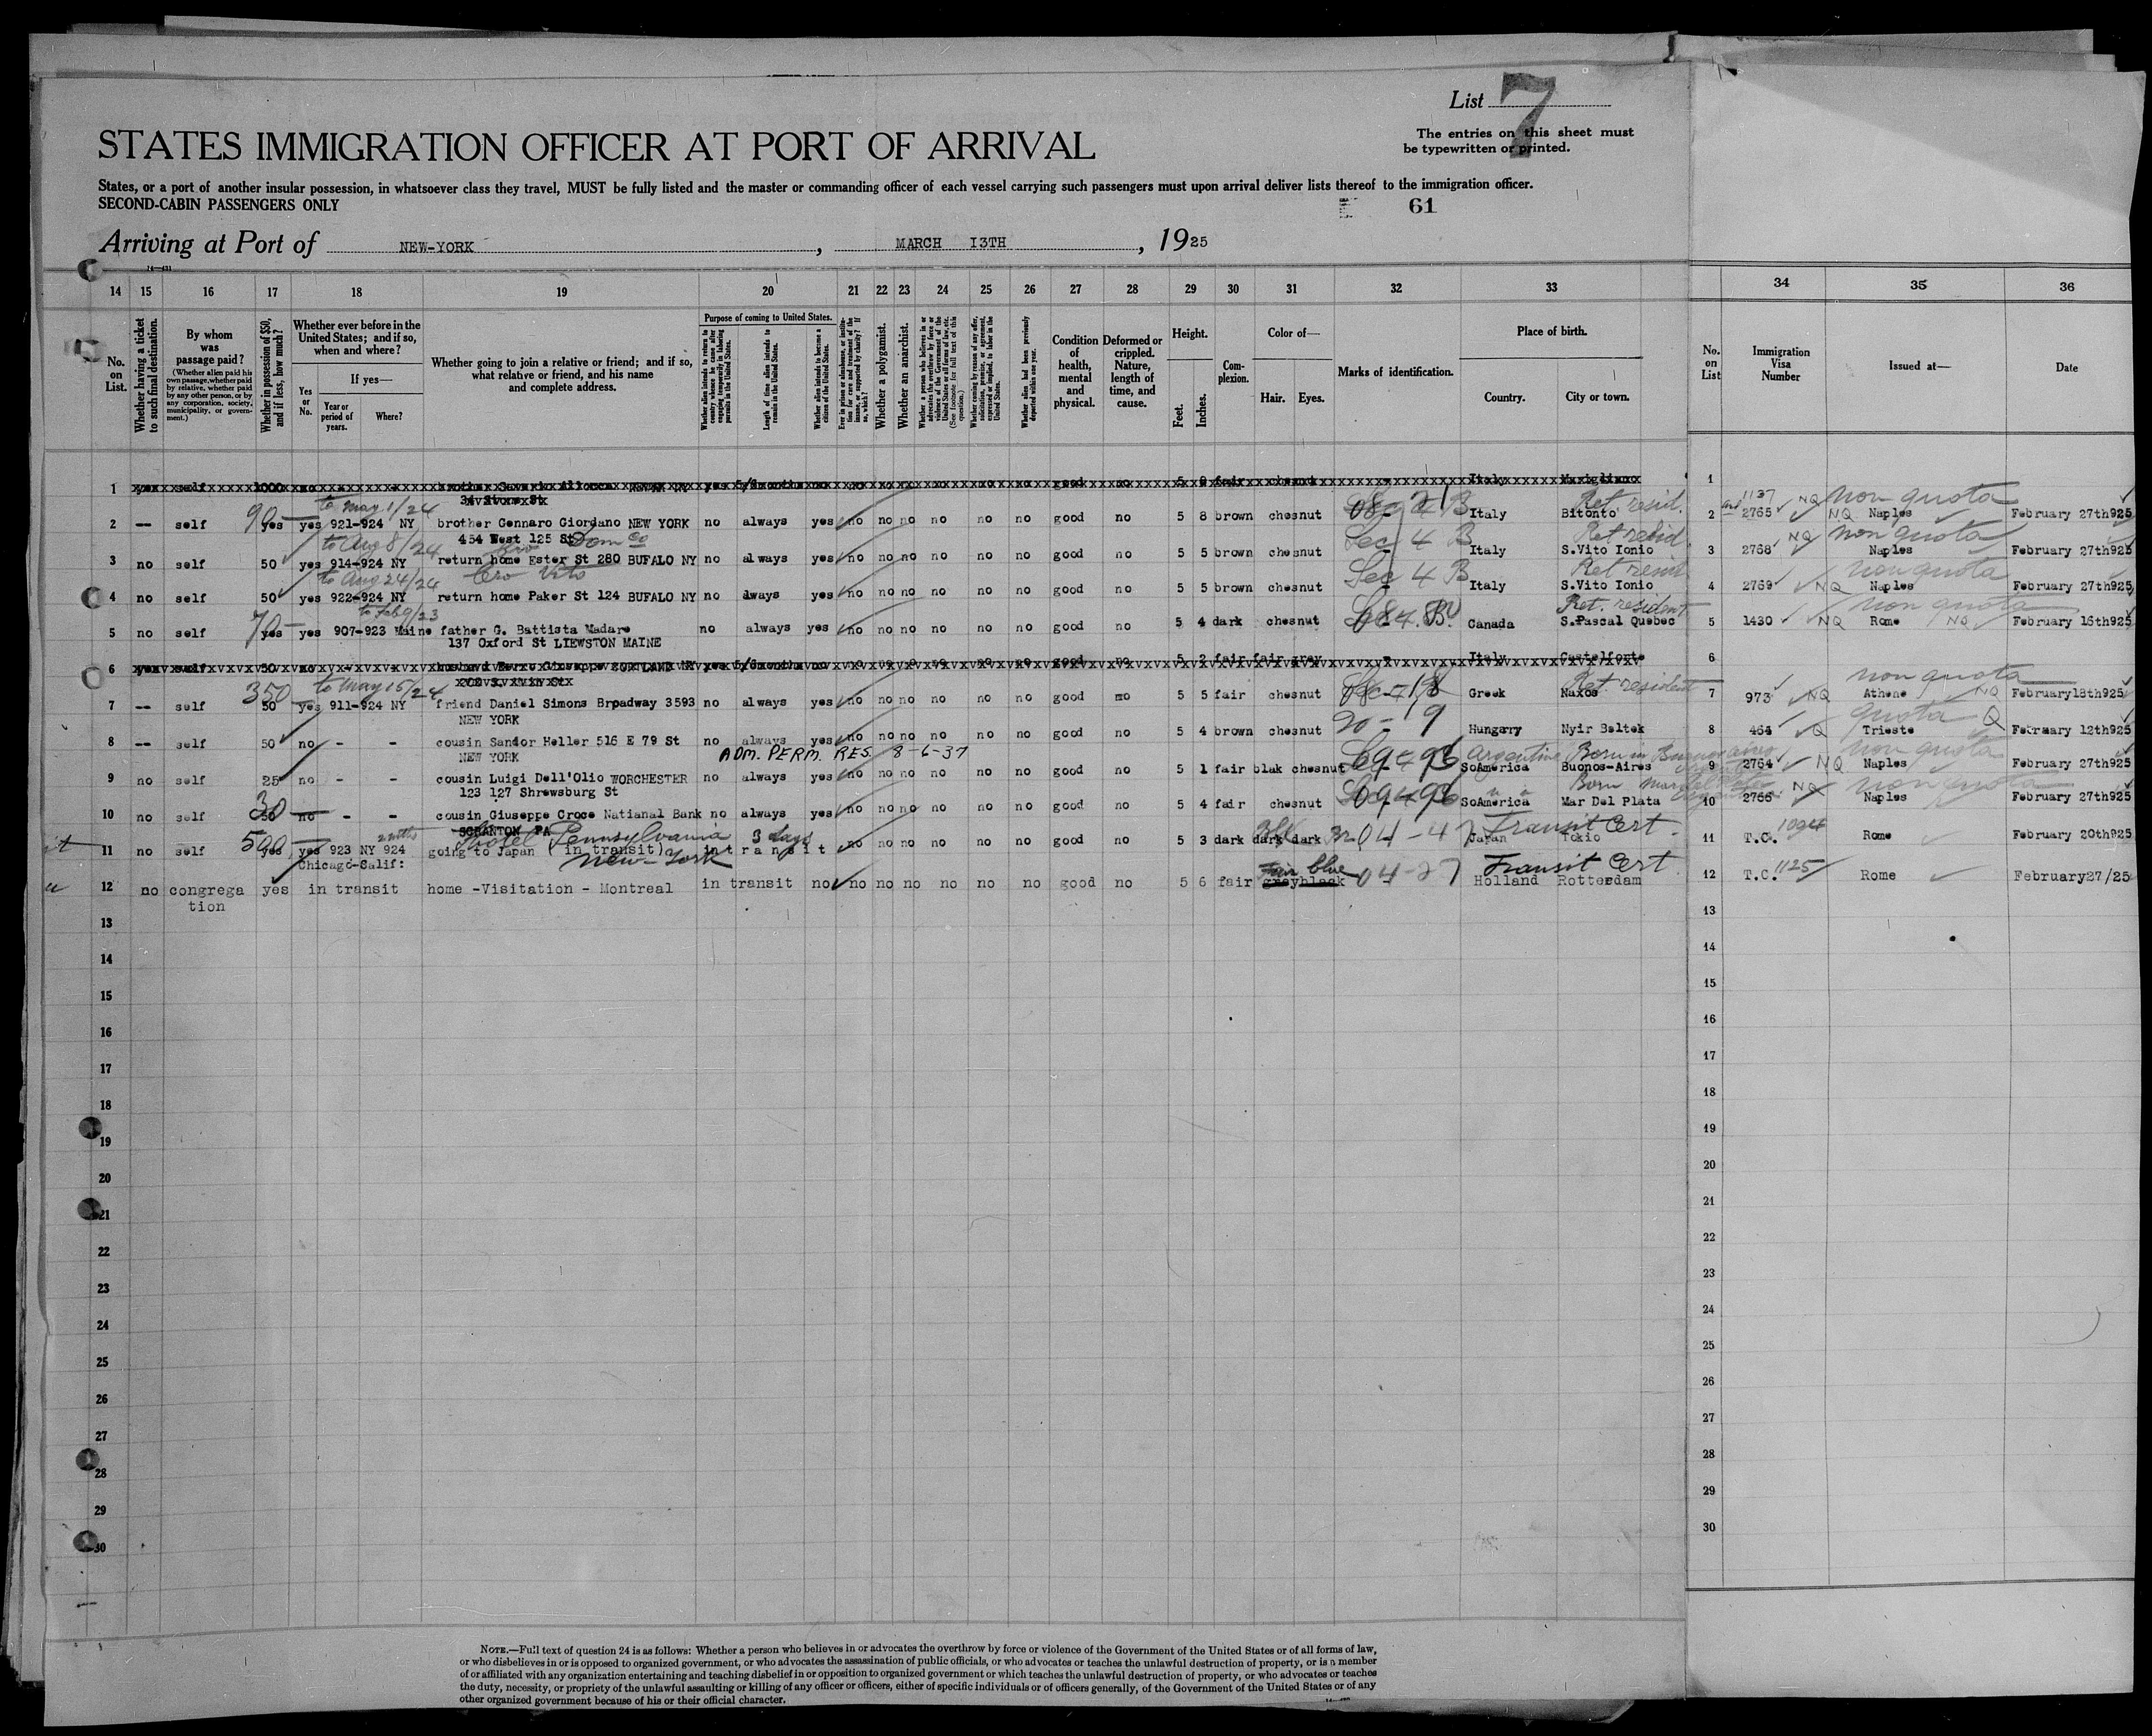 List 7
The entries on this sheet must
be typewritten or printed.
STATES IMMIGRATION OFFICER AT PORT OF ARRIVAL
States, or a port of another insular possession, in whatsoever class they travel, MUST be fully listed and the master or commanding officer of each vessel carrying such passengers must upon arrival deliver lists thereof to the immigration officer.
SECOND-CABIN PASSENGERS ONLY
61
Arriving at Port of NEW-YORK, MARCH I3TH, 1925
14 15 16 17 18 19 20 21 22 23 24 25 26 27 28 29 30 31 32 33 34 35 36
No. on List.
Whether having a ticket to such final destination.
By whom was passage paid?
(Whether alien paid his own passage, whether paid by relative, whether paid by any other person, or by any corporation, society, municipality, or government.)
Whether in possession of $50, and if less, how much?
Whether ever before in the United States; and if so, when and where?
Yes or No.
If yes—
Year or period of years.
Where?
Whether going to join a relative or friend; and if so, what relative or friend, and his name and complete address.
Purpose of coming to United States.
Whether alien intends to return to country whence he came after engaging temporarily in laboring pursuits in the United States.
Length of time alien intends to remain in the United States.
Whether alien intends to become a citizen of the United States.
Whether a polygamist.
Whether an anarchist.
Whether coming by reason of any offer, solicitation, promise, or agreement, expressed or implied, to labor in the United States.
Whether alien had been previously deported within one year.
Condition of health, mental and physical.
Deformed or crippled. Nature, length of time, and cause.
Height.
Feet.
Inches.
Complexion.
Color of—
Hair.
Eyes.
Marks of identification.
Place of birth.
Country.
City or town.
No. on List
Immigration Visa Number
Issued at—
Date
1 1000 5 Italy 1
to May 1/24 non quota
2 -- self 90 yes yes 921-924 NY brother Gennaro Giordano NEW YORK no always yes no no no no no no good no 5 8 brown chesnut Italy Bitonto Ret resid. 2 1137 2765 NQ Naples February 27th925
454 West 125 St
to Aug 8/24 Sec 4 B Ret resid. non quota
3 no self 50 yes 914-924 NY return home Ester St 280 BUFALO NY no always yes no no no no no no good no 5 5 brown chesnut Italy S.Vito Ionio 3 2768 NQ Naples February 27th925
to Aug 24/24 Vito Sec 4 B Ret resid non quota
4 no self 50 yes 922-924 NY return home Paker St 124 BUFALO NY no lways yes no no no no no no good no 5 5 brown chesnut Italy S.Vito Ionio 4 2769 NQ Naples February 27th925
to Feb 9/23 Ret. resident non quota
5 no self 70 yes yes 907-923 Maine father G. Battista Madare no always yes no no no no no no good no 5 4 dark chesnut Canada S.Pascal Quebec 5 1430 NQ Rome NQ February 16th925
137 Oxford St LIEWSTON MAINE
6 50 no good 5 2 fair fair grey Italy Castelforte 6
to May 15/24 Ret. resident non quota
7 -- self 350 50 yes 911-924 NY friend Daniel Simons Broadway 3593 no always yes no no no no no no good mo 5 5 fair chesnut Greek Naxos 7 973 NQ Athene NQ February18th925
NEW YORK 20-19 quota Q
8 -- self 50 no - - cousin Sandor Heller 516 E 79 St no always yes no no no no no no good no 5 4 brown chesnut Hungarry Nyir Beltek 8 464 Q Trieste February 12th925
NEW YORK ADM. PERM. RES. 8-6-37 Argentine Born in Buenos aires non quota
9 no self 25 no - - cousin Luigi Dell'Olio WORCHESTER no always yes no no no no no no good no 5 1 fair blak chesnut SoAmerica Buonos-Aires 9 2764 NQ Naples February 27th925
123 127 Shrewsburg St Born non quota
10 no self 30 50 no - - cousin Giuseppe Croce Natianal Bank no always yes no no no no no no good no 5 4 fair chesnut SoAmerica Mar Del Plata 10 2766 NQ Naples February 27th925
SCRANTON PA Hotel Pennsylvania 3 days Transit Cert.
11 no self 500 yes yes 923 NY 924 going to Japan (in transit) in transit no no no no no no good no 5 3 dark dark dark 04-47 Japan Tokio 11 T.C. 1094 Rome February 20th925
Chicago-Salif: New-York Fair blue Transit Cert
12 no congregation yes in transit home -Visitation - Montreal in transit no no no no no no no good no 5 6 fair greyblack 04-27 Holland Rotterdam 12 T.C. 1125 Rome February27/25
13 13
14 14
15 15
16 16
17 17
18 18
19 19
20 20
21 21
22 22
23 23
24 24
25 25
26 26
27 27
28 28
29 29
30 30
NOTE.—Full text of question 24 is as follows: Whether a person who believes in or advocates the overthrow by force or violence of the Government of the United States or of all forms of law,
or who disbelieves in or is opposed to organized government, or who advocates the assassination of public officials, or who advocates or teaches the unlawful destruction of property, or is a member
of or affiliated with any organization entertaining and teaching disbelief in or opposition to organized government or which teaches the unlawful destruction of property, or who advocates or teaches
the duty, necessity, or propriety of the unlawful assaulting or killing of any officer or officers, either of specific individuals or of officers generally, of the Government of the United States or of any
other organized government because of his or their official character.